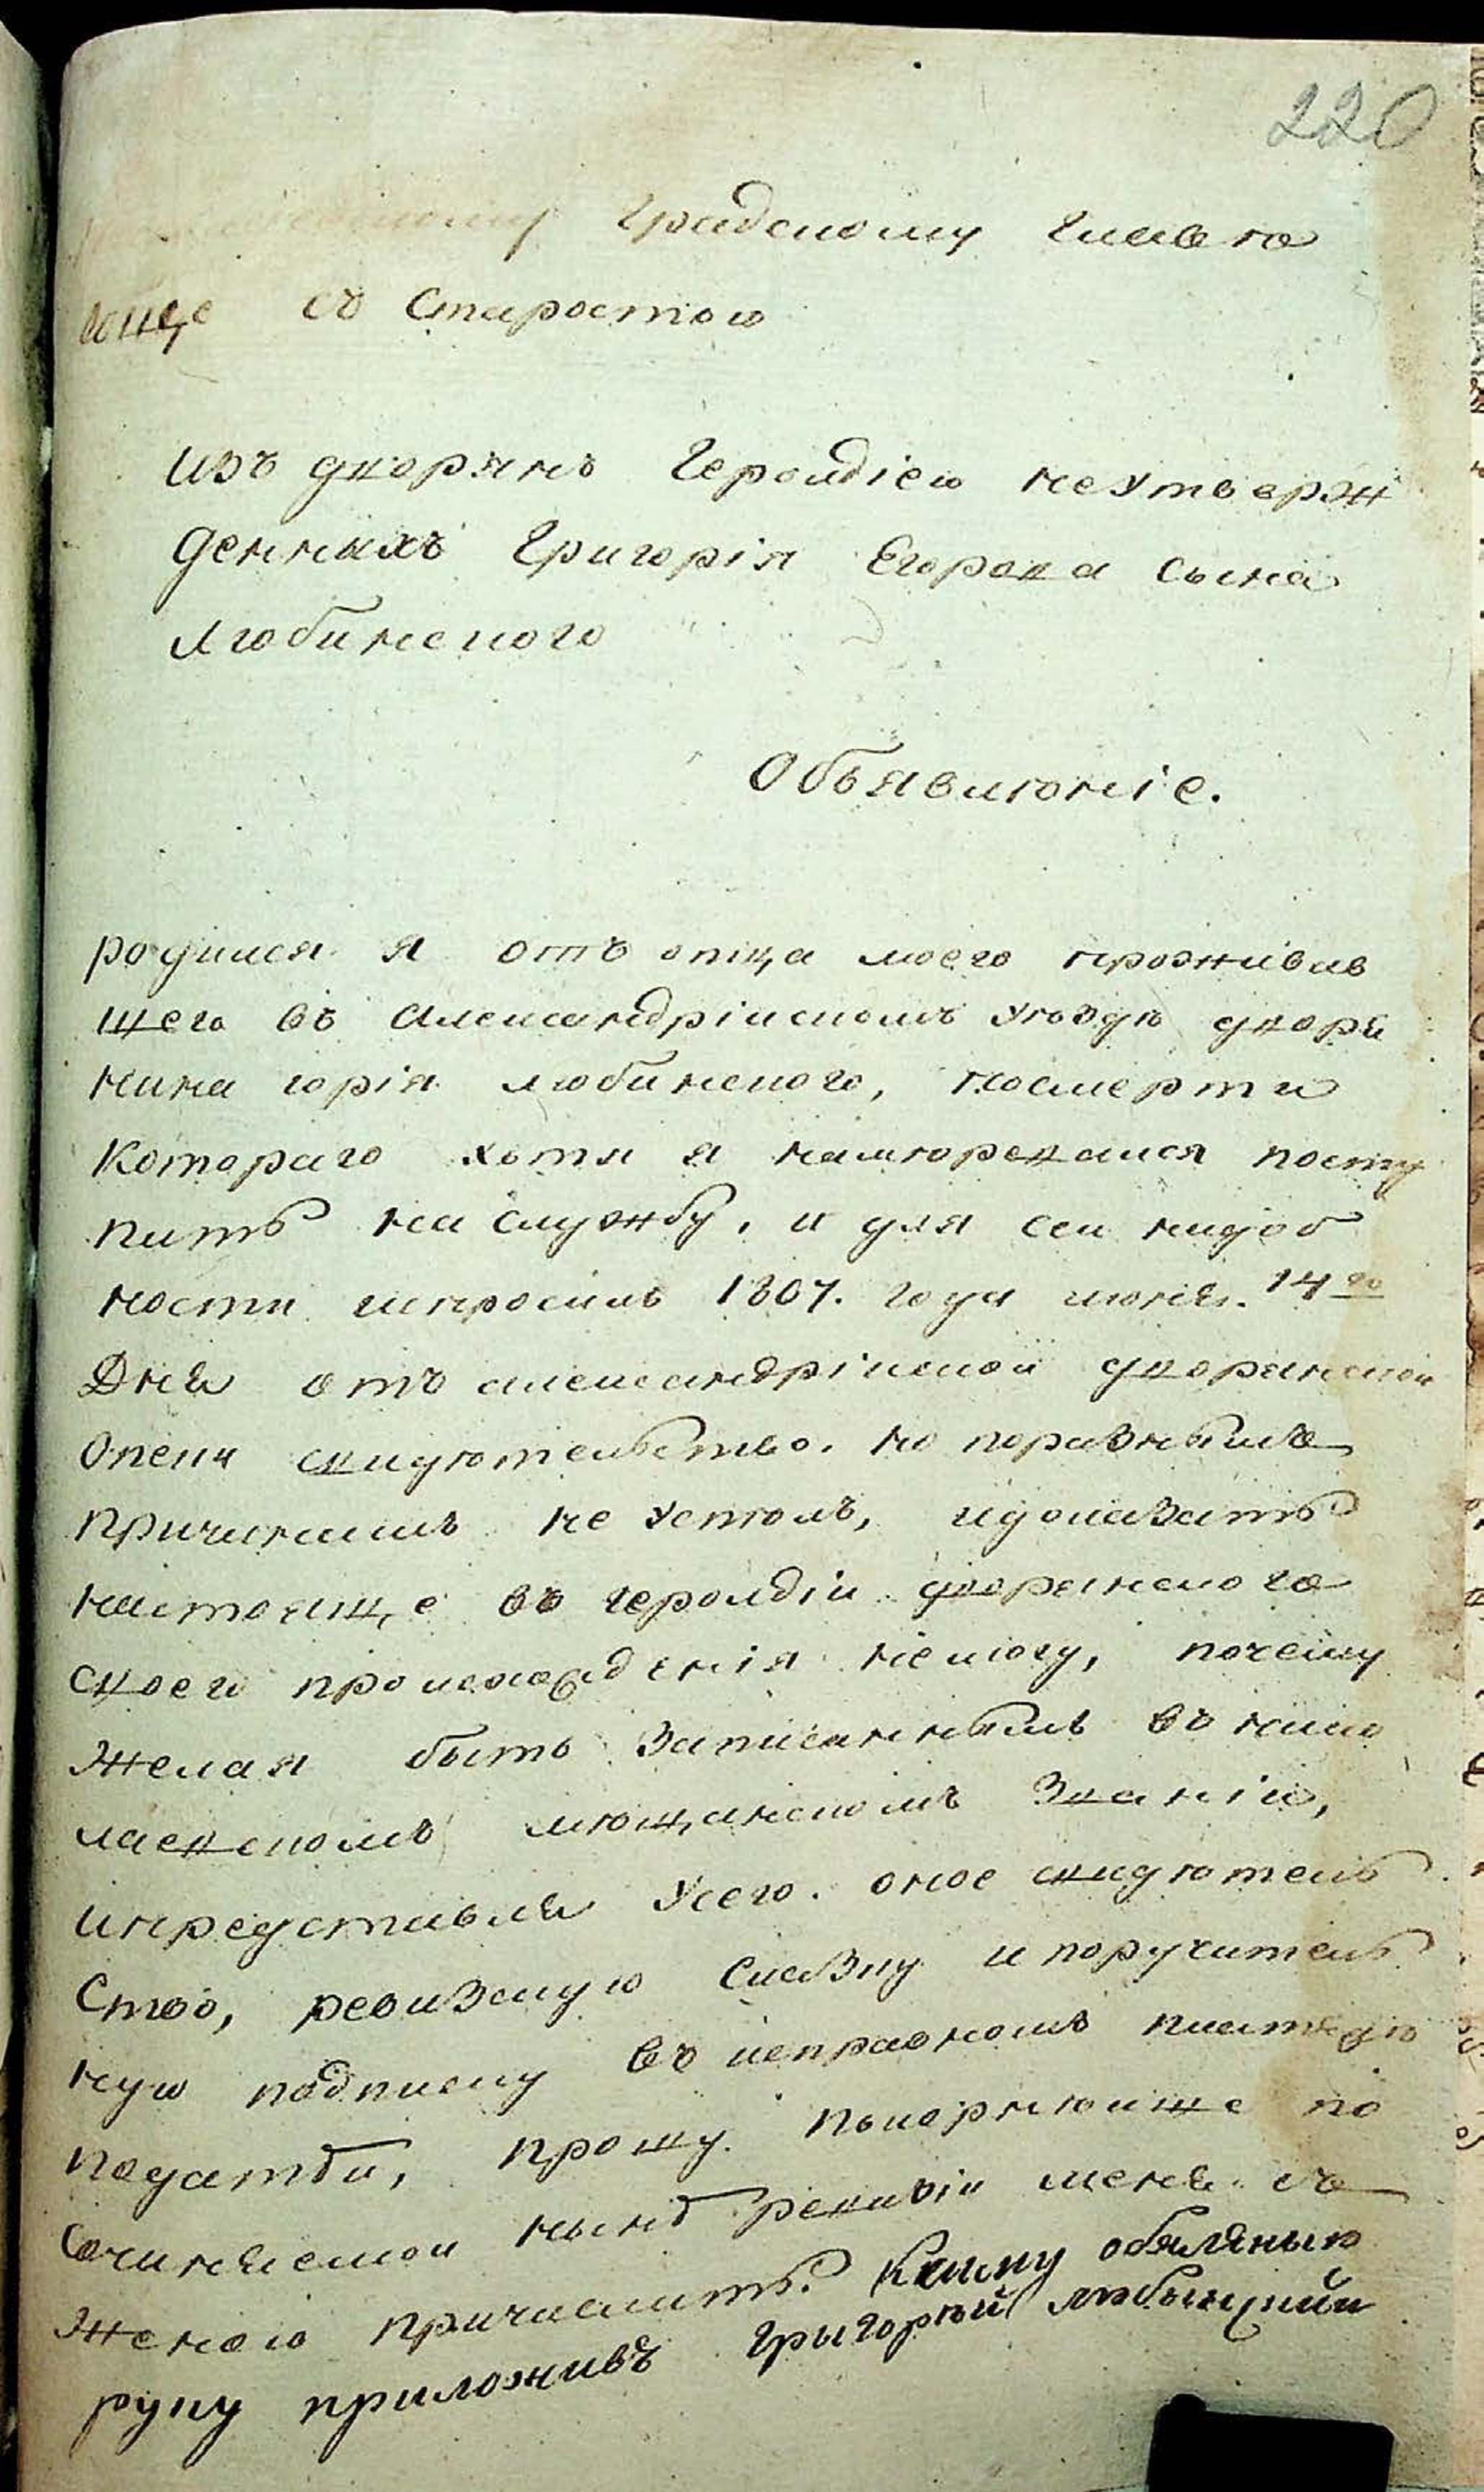 220
Градскому Главе
обще съ Старостою
изъ дворянъ Герольдіею неутверж
денныхъ Григорія Егорова сына
Любинского
Объявленіе.
родился я отъ отца моего проживав
шего въ Александрійскомъ уѣздѣ дворя
нина горія любинского, посмерти
котораго хотя я намѣревался посту
пить на службу, и для сей надоб
ности испросилъ 1807. года июня. 14го
Дня отъ александрійской дворянской
Опеки свидѣтельство. но поразнымъ
причинамъ не успѣлъ, идоказать
настояще въ герольдіи дворянского
своего происхожденія немогу, почему
желая быть Записаннымъ въ
мѣщанскомъ Званіи,
ипредставля усего. оное свидѣтель
ство, ревизкую Сказку и поручитель
ную подписку въ исправномъ платежѣ
податей, прошу. покорнѣйше по
сочиняемой нынѣ ревизіи меня съ
женою причислить. Ксему обявленію
руку приложивъ Грыгорий любынский